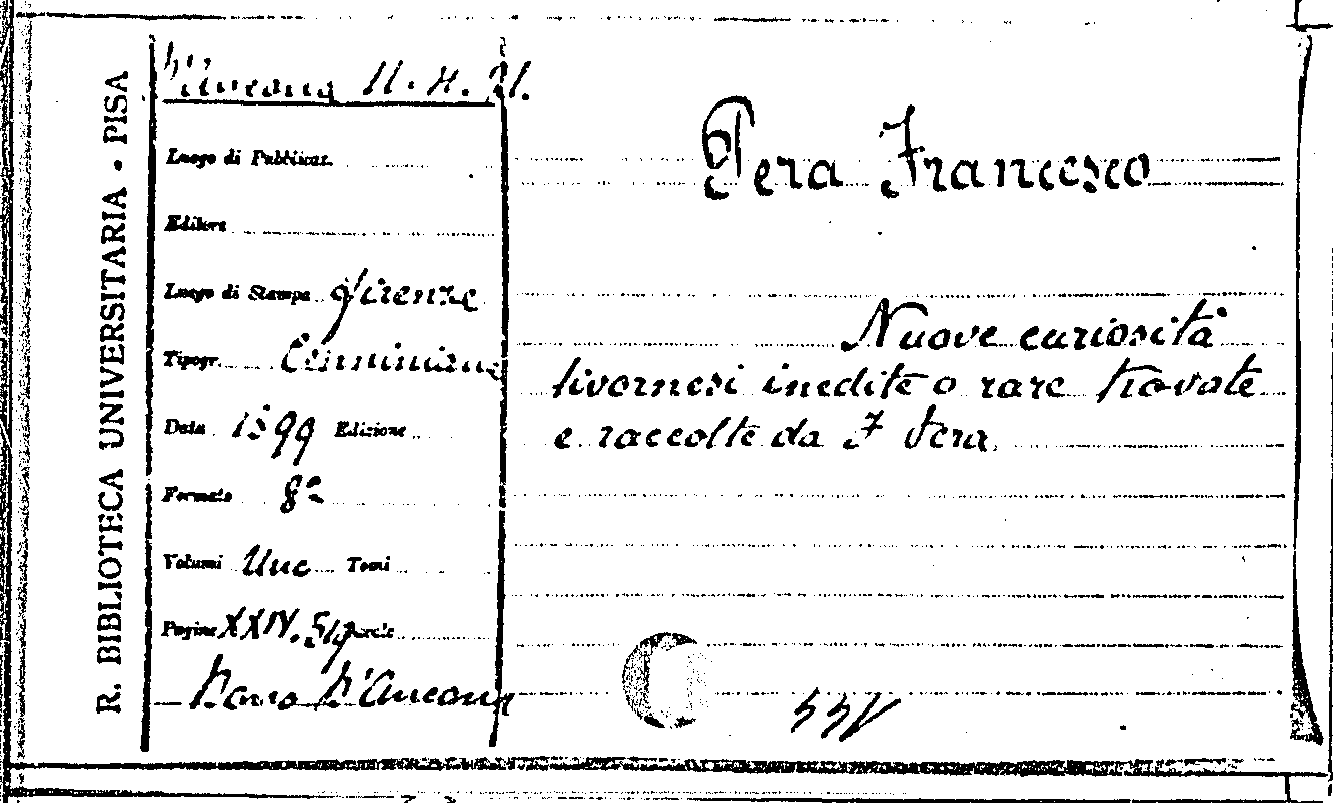 R. BIBLIOTECA UNIVERSITARIA • PISA
D'Ancona 11. 4. 21.
Luogo di Pubblicaz.
Editore
Luogo di Stampa Firenze
Tipogr.
Data 1899 Edizione
Formato 8º
Volumi Uno Tomi
Pagine XXIV. 519
Dono D'Ancona
Pera Francesco
Nuove curiosità
livornesi inedite o rare trovate
e raccolte da F Pera